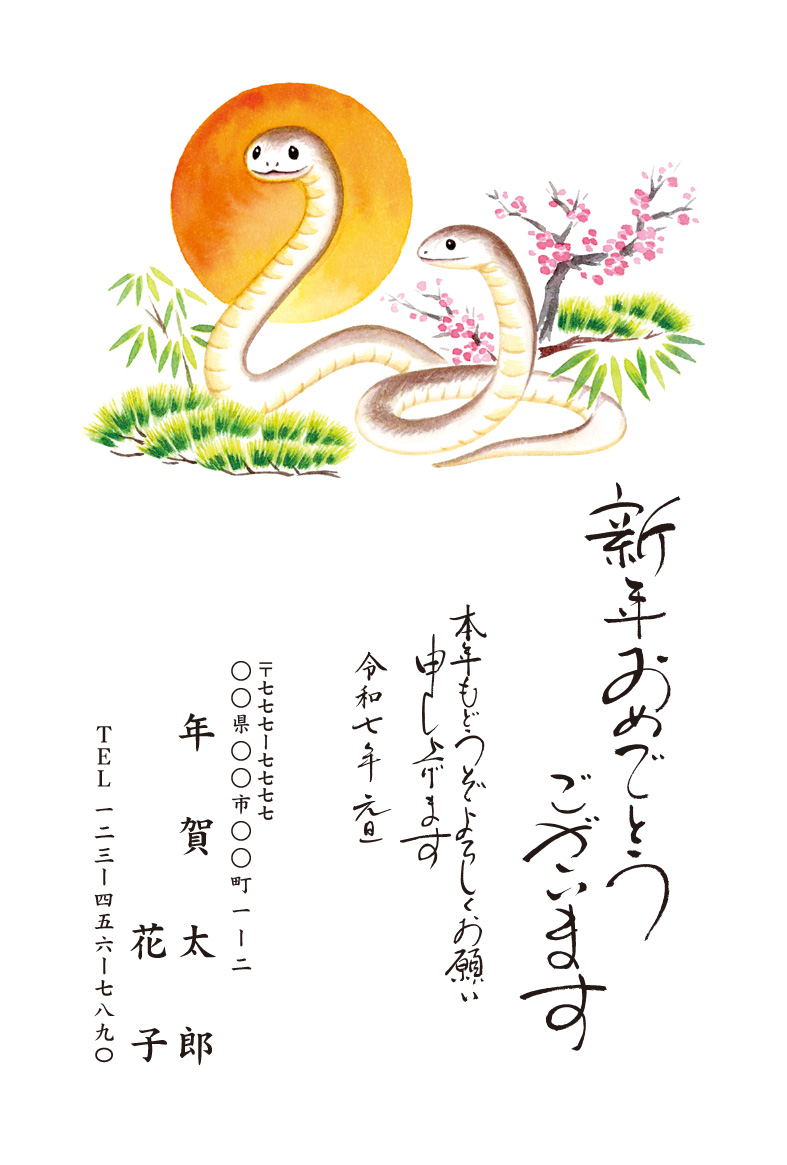 新年おめでとう
ございます
本年もどうぞよろしくお願い
申し上げます
令和七年 元旦
〒七七七ー七七七七
〇〇県〇〇市〇〇町一ー二
年賀太郎
花子
TEL 一二三ー四五六ー七八九〇